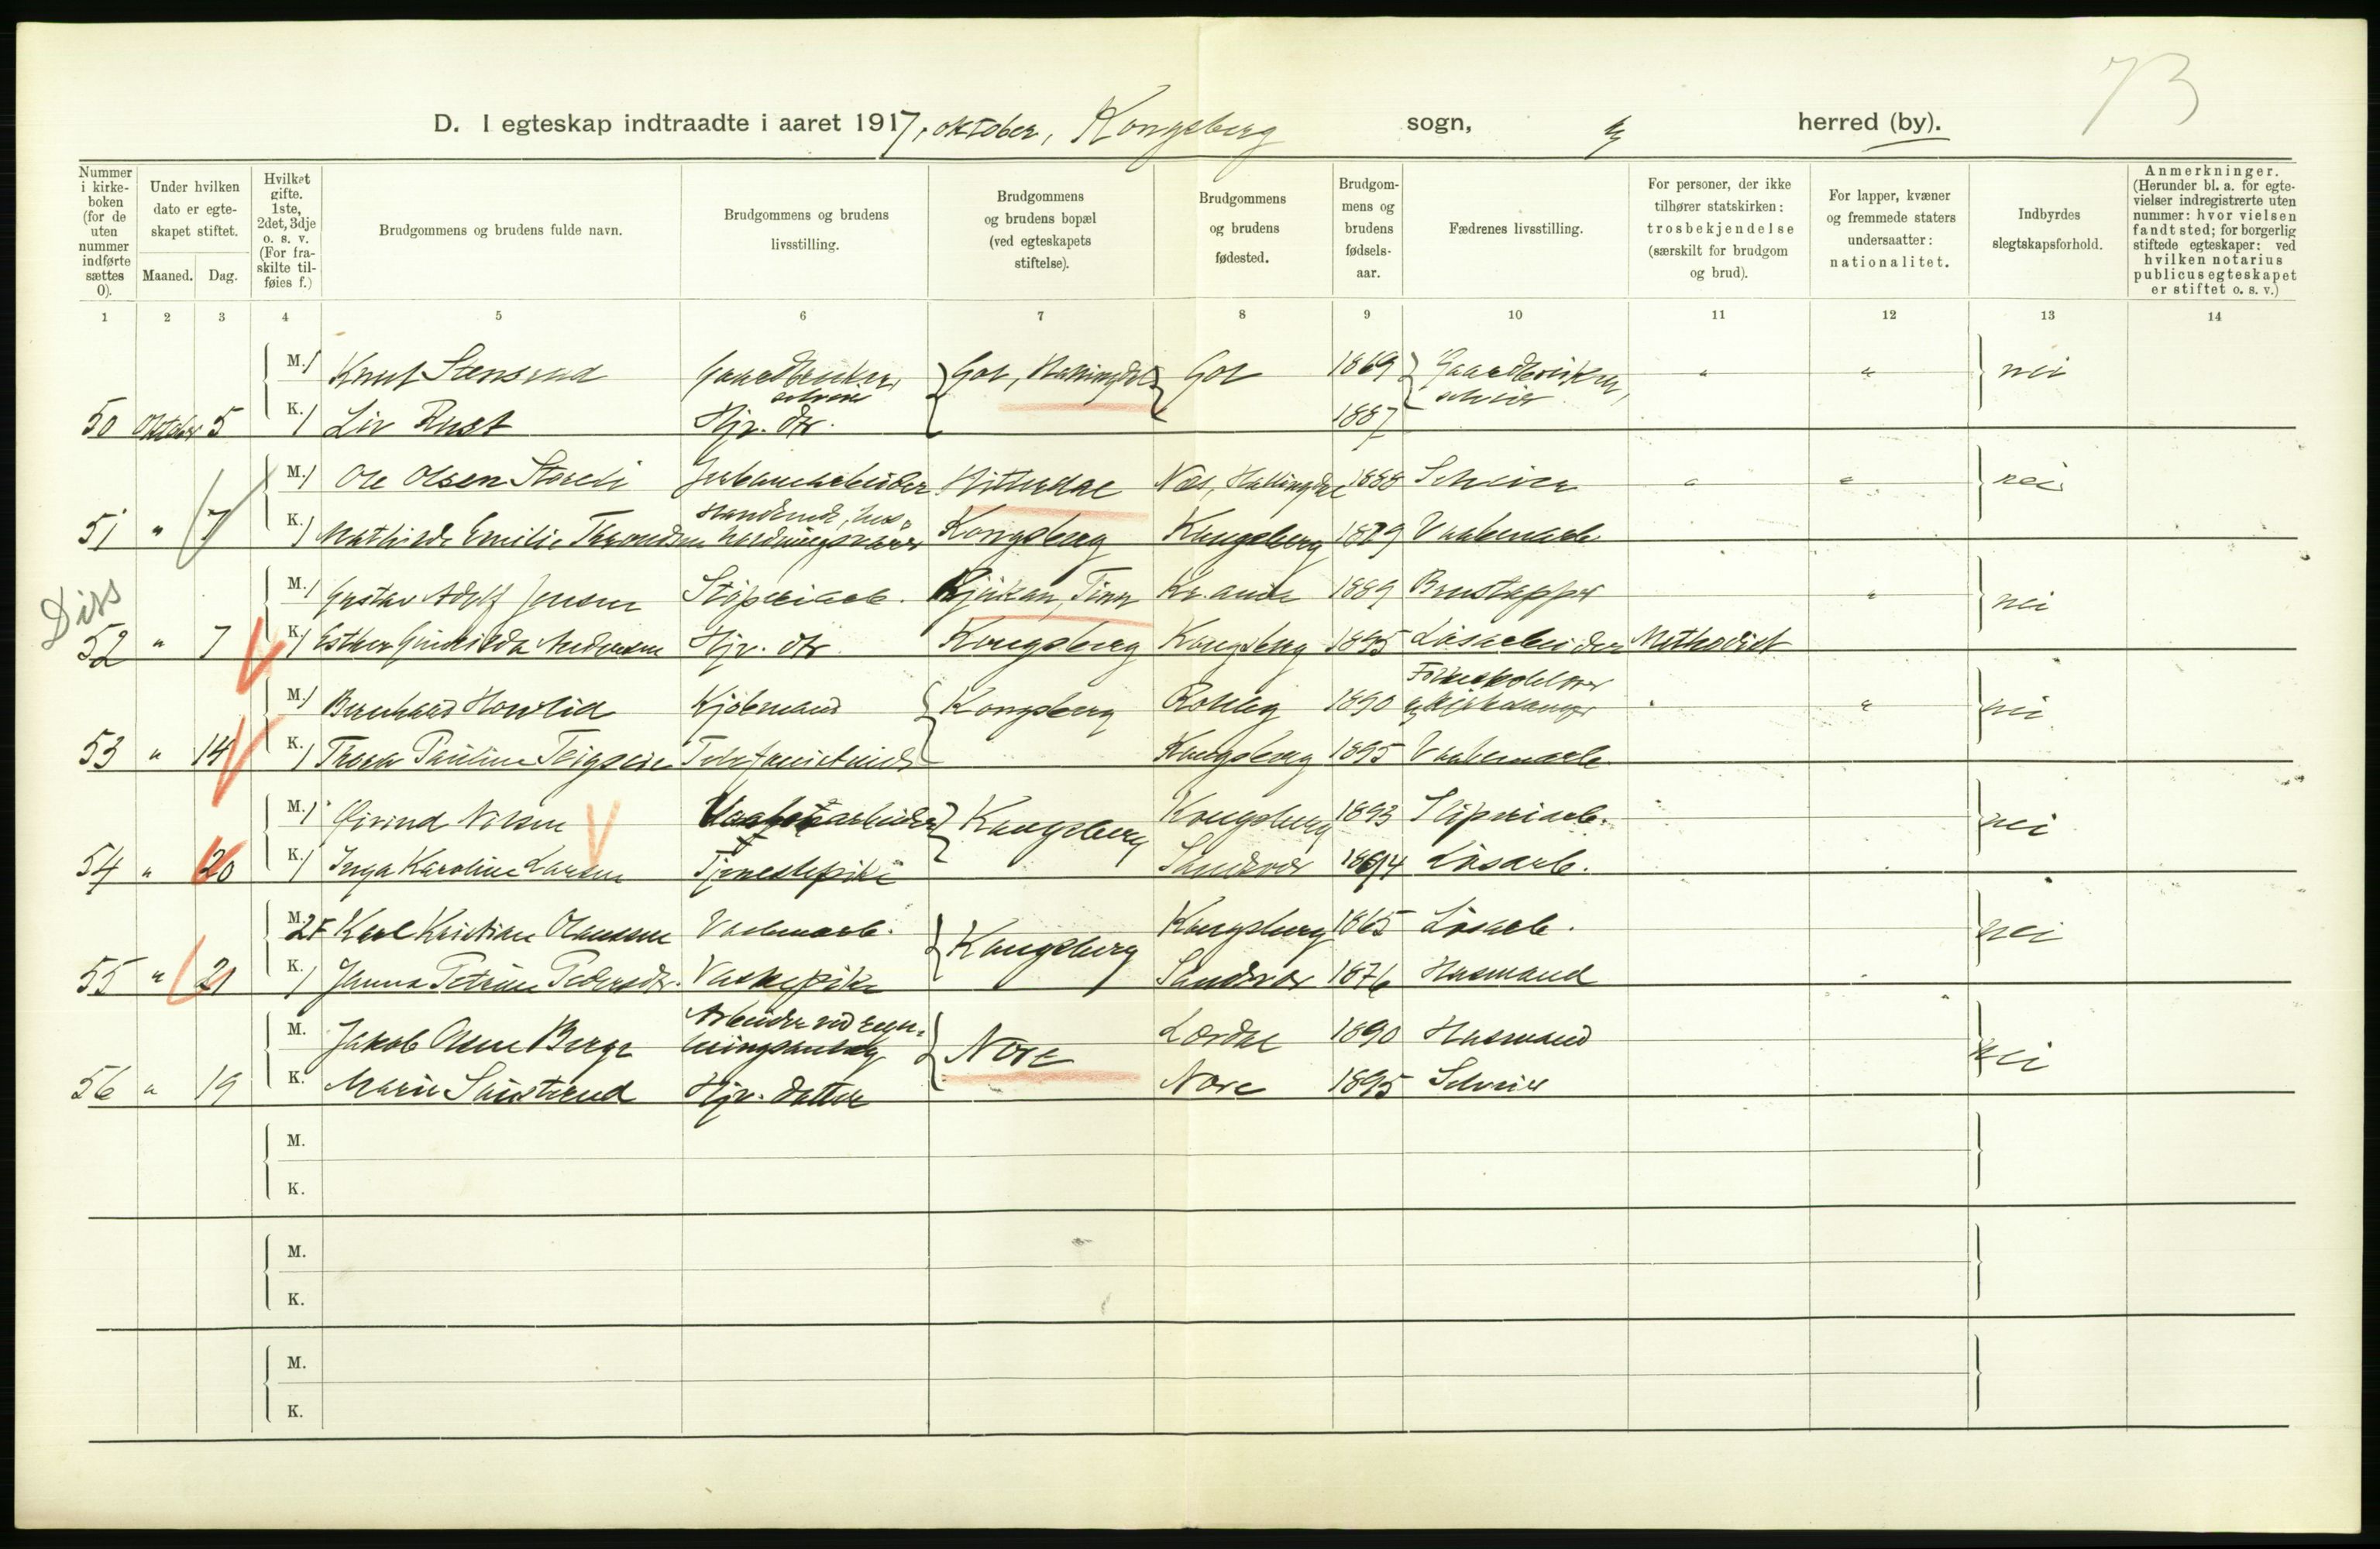 73
D. I egteskap indtraadte i aaret 1917, oktober, Kongsberg sogn, herred (by).
Nummer i kirkeboken (for de uten nummer indførte sættes 0).
Under hvilken dato er egteskapet stiftet.
Maaned. Dag.
Hvilket gifte. 1ste, 2det, 3dje o. s. v. (For fraskilte tilføies f.)
Brudgommens og brudens fulde navn.
Brudgommens og brudens livsstilling.
Brudgommens og brudens bopæl (ved egteskapets stiftelse).
Brudgommens og brudens fødested.
Brudgommens og brudens fødselsaar.
Fædrenes livsstilling.
For personer, der ikke tilhører statskirken: trosbekjendelse (særskilt for brudgom og brud).
For lapper, kvæner og fremmede staters undersaatter: nationalitet.
Indbyrdes slegtskapsforhold.
Anmerkninger. (Herunder bl. a. for egtevielser indregistrerte uten nummer: hvor vielsen fandt sted; for borgerlig stiftede egteskaper: ved hvilken notarius publicus egteskapet er stiftet o. s. v.)
1 2 3 4 5 6 7 8 9 10 11 12 13 14
M. 1 Knut Stensrud Gaardbruker, selveier Gol, Hallingdal Gol 1869 Gaardbruker, selveier " " nei
50 Oktober 5 K. 1 Liv Rust Hjv. dtr. 1887
M. 1 Ole Olsen Storeli Jernbanearbeider Hitterdal Næs, Hallingdal 1888 Selveier " " nei
51 " 7 K. 1 Mathilde Emilie Thorondsen Kongsberg Kongsberg 1879 Vaabenarb.
Diss
M. 1 Gustav Adolf Jensen Støperiarb. Rjukan, Tinn Kr.ania 1889 " nei
52 " 7 K. 1 Esther Andersen Hjv. dtr. Kongsberg Kongsberg 1895 Løsarbeider Methodist
M. 1 Bernhard Howlid Kjøbmand Kongsberg Rollag 1890 " " nei
53 " 14 K. 1 Thora Pauline Teigseie Telefonistinde Kongsberg 1895 Vaabenarb.
M. 1 Øivind Nilsen Kongsberg Kongsberg 1893 Sliperiarb. nei
54 " 20 K. 1 Inga Karoline Larsen Tjenestepike Sandsvær 1894 Løsarb.
M. 2F Karl Kristian Olaussen Vaabenarb. Kongsberg Kongsberg 1865 Løsarb. nei
55 " 21 K. 1 Janna Petrine Pedersdtr. Vaskepike Sandsvær 1876 Husmand
M. Jakob Olsen Berge Arbeider ved reguleringsanlæg Nore Lærdal 1890 Husmand nei
56 " 19 K. Marie Hjv. datter Nore 1895 Selveier
M.
K.
M.
K.
M.
K.